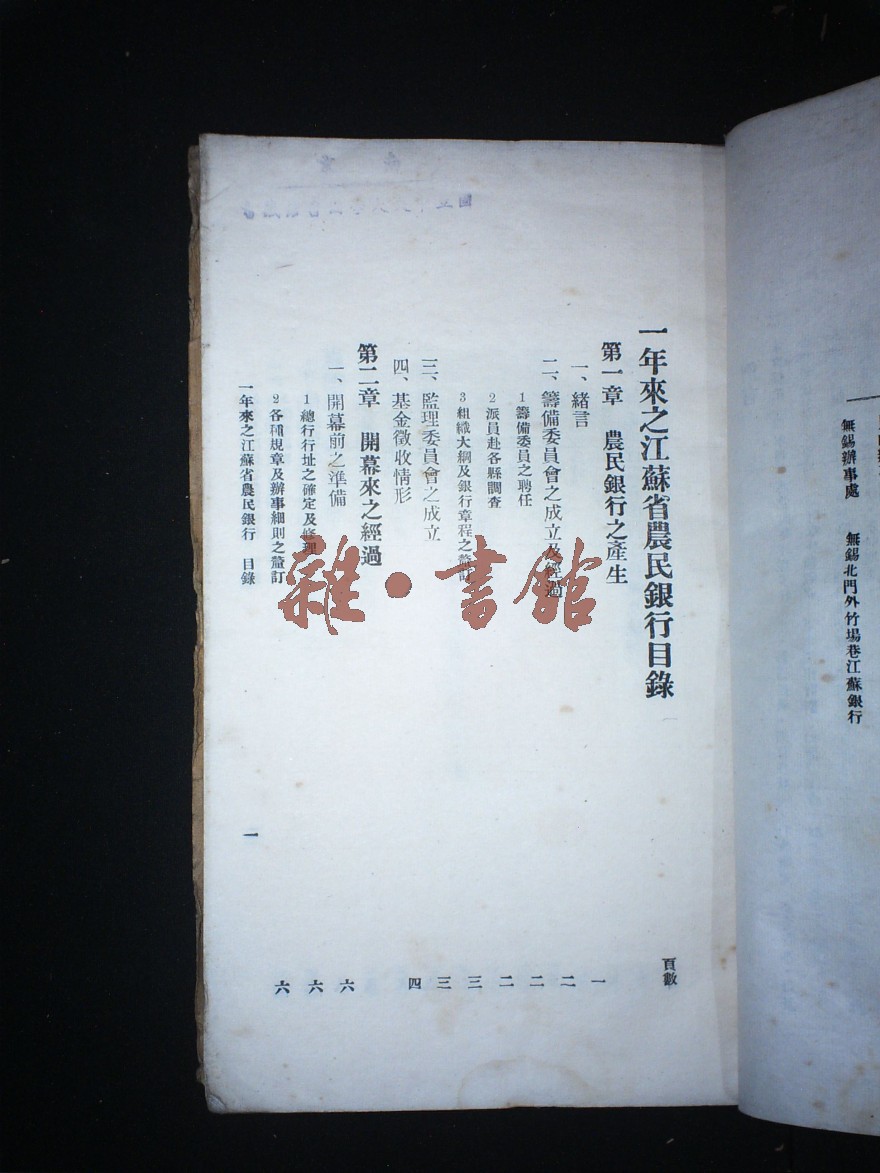 無錫辦事處　無錫北門外竹場巷江蘇銀行
一年來之江蘇省農民銀行目錄　頁數
第一章　農民銀行之產生
一、緒言　一
二、籌備委員會之成立及經過　二
1 籌備委員之聘任　二
2 派員赴各縣調查　二
3 組織大綱及銀行章程之釐訂　三
三、監理委員會之成立　三
四、基金徵收情形　四
第二章　開幕來之經過
一、開幕前之準備　六
1 總行行址之確定及修理　六
2 各種規章及辦事細則之釐訂　六
一年來之江蘇省農民銀行　目錄　一
雜·書館